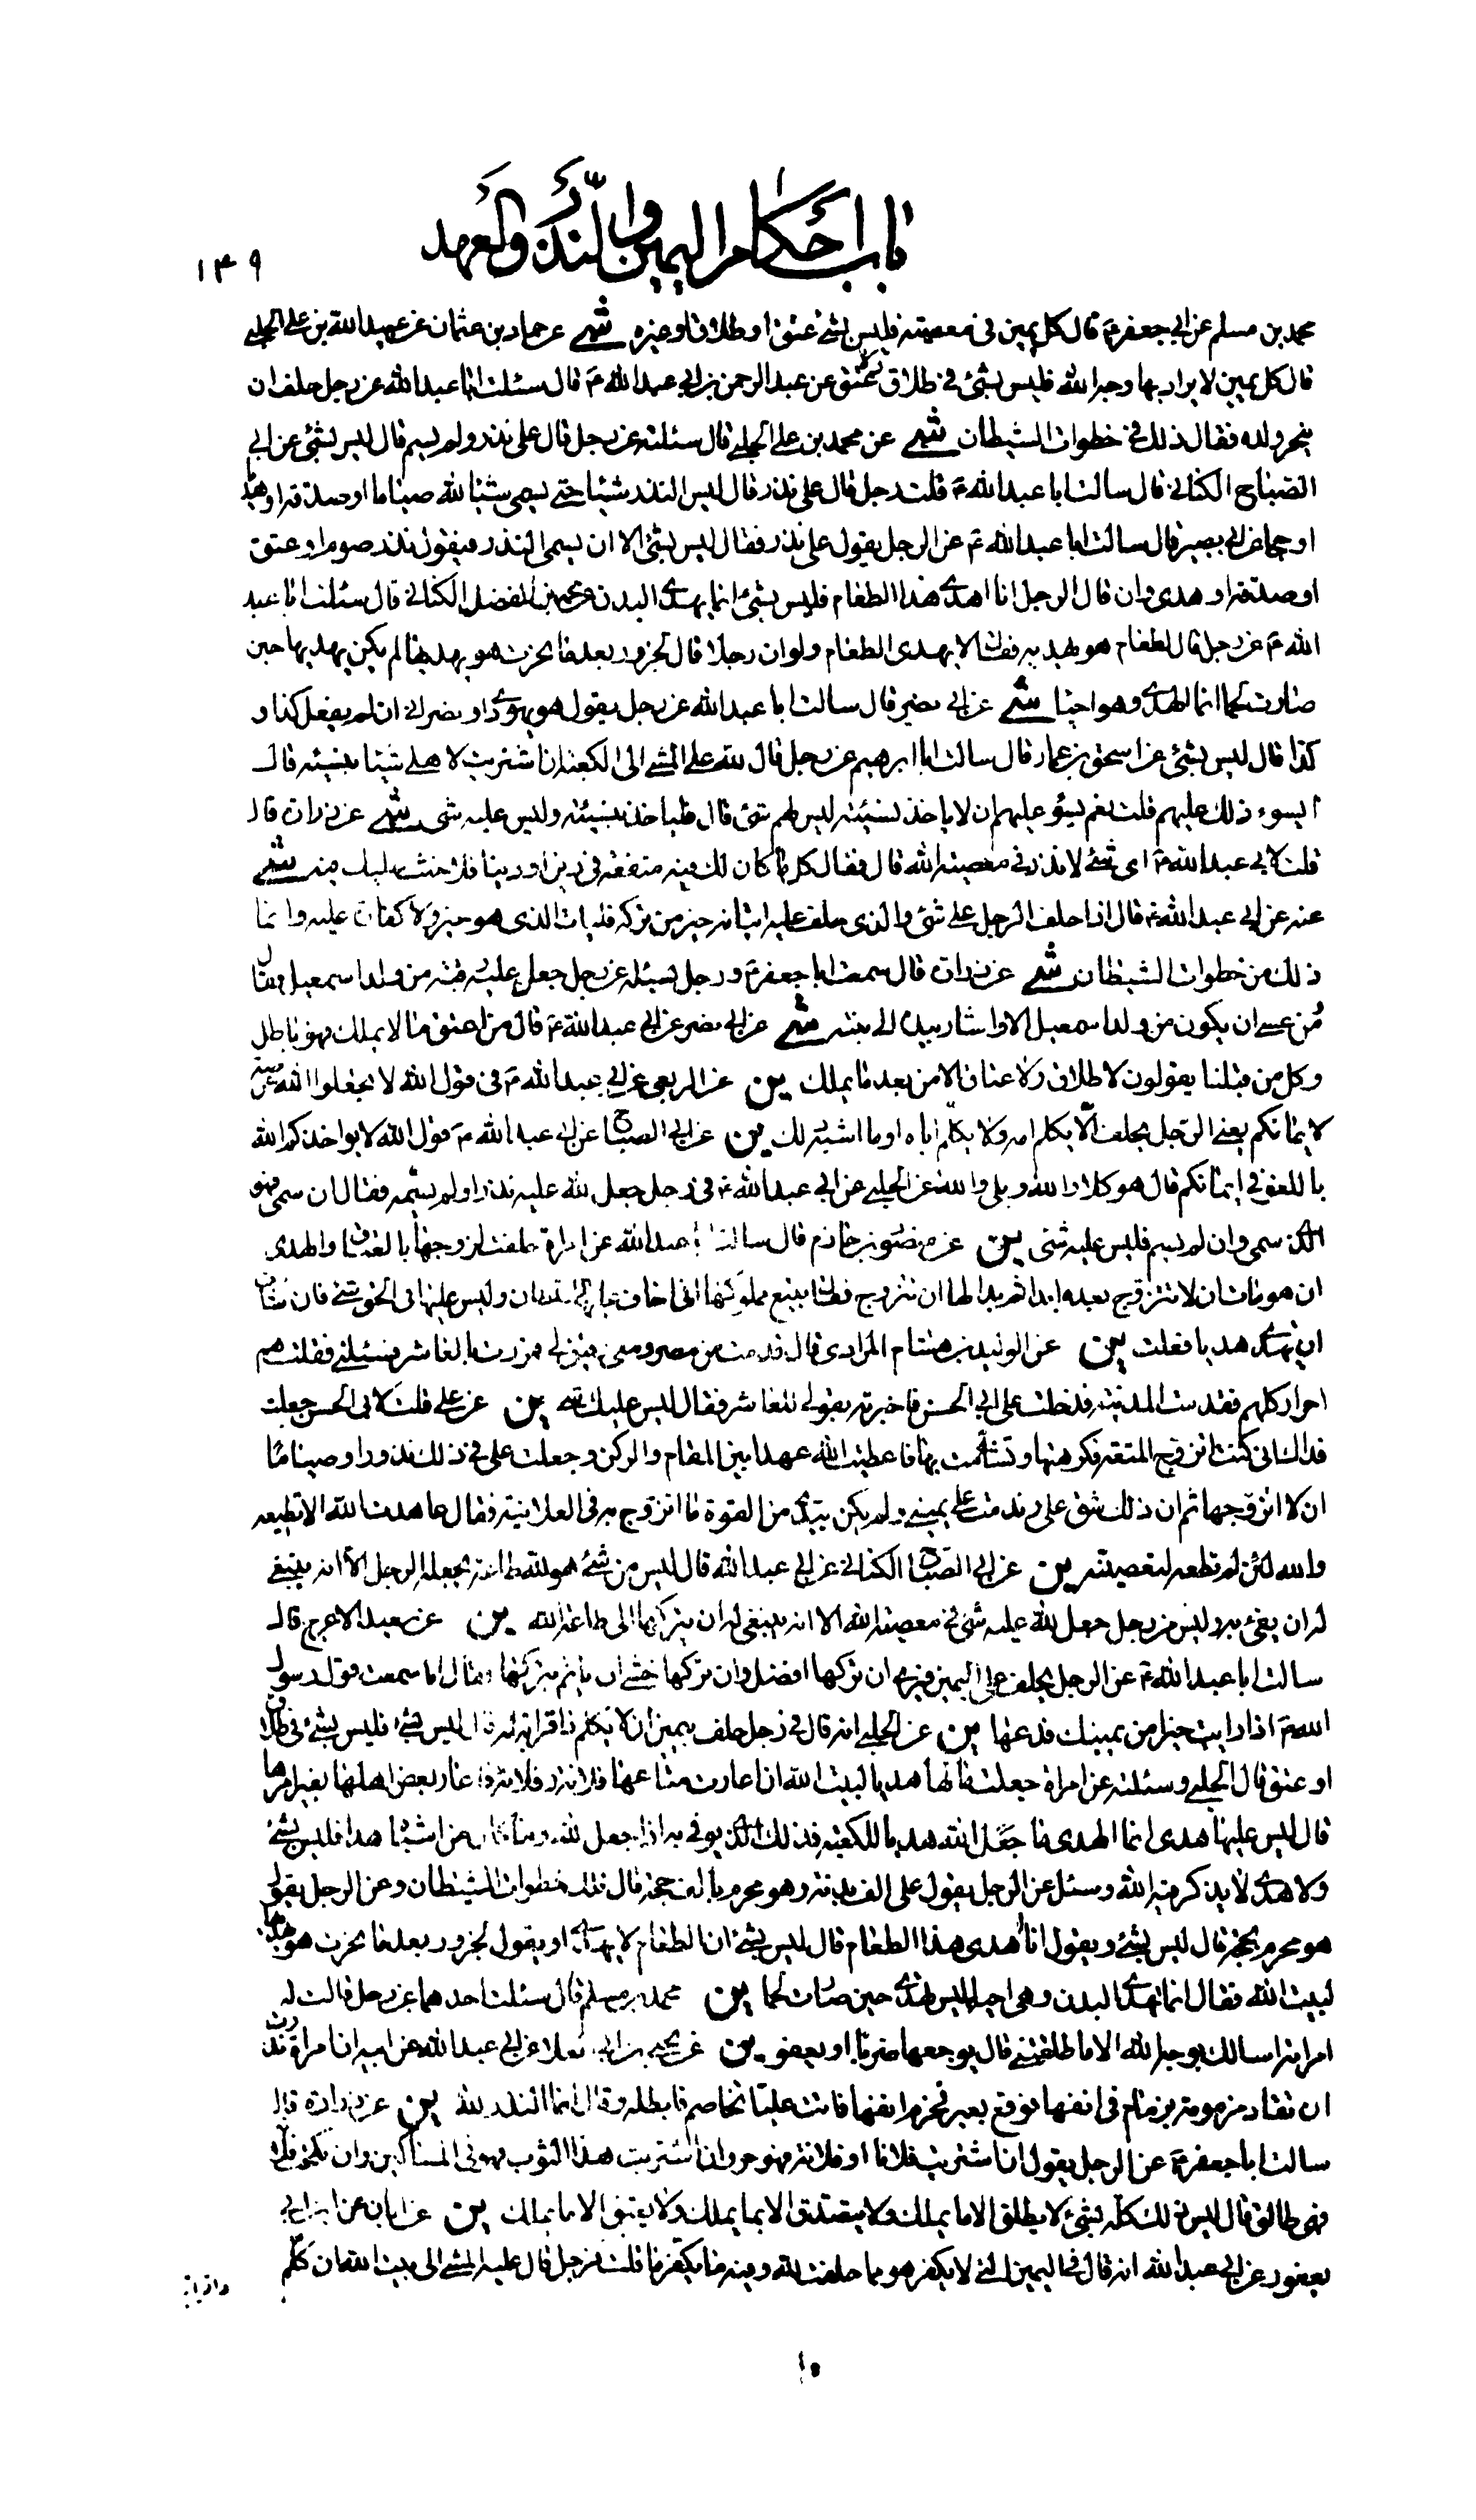 باب احكام اليمين والنذر والعهد
١٣٩
محمد بن مسلم عن ابي جعفر ع قال كل يمين في معصية فليس بشئ عتق او طلاق او غيره شى عن حماد بن عثمان عن عبيد الله بن على الحلبي
قال كل يمين لا يراد بها وجه الله فليس بشئ في طلاق عتق عن عبد الرحمن بن ابي عبد الله ع قال سئلت ابا عبد الله عن رجل حلف ان
ينحر ولده فقال ذلك من خطوات الشيطان شى عن محمد بن على الحلبي قال سئلته عن رجل قال على نذر ولم يسم قال ليس بشئ عن ابي
الصباح الكناني قال سالت ابا عبد الله ع قلت رجل قال على نذر قال ليس النذر شيئا حتى يسمى شيئا لله صياما او صدقة او هديا
او حجا عن ابي بصير قال سالت ابا عبد الله ع عن الرجل يقول على نذر فقال ليس بشئ الا ان يسمى النذر فيقول نذر صوم او عتق
او صدقة او هدى وان قال الرجل انا اهدى هذا الطعام فليس بشئ انما يهدى البدن عن محمد بن الفضل الكناني قال سئلت ابا عبد
الله ع عن رجل قال لطعام هو يهديه فقال لا يهدى الطعام ولو ان رجلا قال لجزور بعد ما نحرت هو يهديها لم يكن يهديها حين
صارت لحما انما الهدى وهو احيا شى عن ابي بصير قال سالت ابا عبد الله عن رجل يقول هو يهودى او نصراني ان لم يفعل كذا و
كذا قال ليس بشئ عن اسحق بن عمار قال سالت ابا ابرهيم عن رجل قال لله على المشى الى الكعبة ان اشتريت لاهلى شيئا بنسيئة قال
ايسوء ذلك عليهم قلت نعم يسؤ عليهم ان لا ياخذ نسيئة ليس لهم شئ قال فلياخذ بنسيئة وليس عليه شى شى عن زرارة قال
قلت لابي عبد الله ع اى شئ لا نذر في معصية الله قال فقال كل ما كان لك فيه منفعة في دين او دنيا فلا حنث عليك فيه شى
عنه عن ابي عبد الله ع قال اذا حلف الرجل على شئ والذى حلف عليه اتيانه خير من تركه فليات الذى هو خير ولا كفارة عليه وانما
ذلك من خطوات الشيطان شى عن زرارة قال سمعت ابا جعفر ع ورجل يسئله عن رجل جعل عليه رقبة من ولد اسمعيل فقال
من عسى ان يكون من ولد اسمعيل الا واشار بيده الى بنيه شى عن ابي بصير عن ابي عبد الله ع قال من اعتق ما لا يملك فهو باطل
وكل من قبلنا يقولون لا طلاق ولا عتاق الا من بعد ما يملك ين عن الربعى عن ابي عبد الله ع في قول الله لا تجعلوا الله عرضة
لايمانكم يعنى الرجل يحلف الا يكلم امه ولا يكلم اباه او ما اشبه ذلك ين عن ابي الصباح عن ابي عبد الله ع قول الله لا يؤاخذكم الله
باللغو في ايمانكم قال هو كلا والله وبلى والله عن الحلبي عن ابي عبد الله ع في رجل جعل لله عليه نذرا ولم يسمه فقال ان سمى فهو
الذى سمى وان لم يسم فليس عليه شئ ين عن منصور بن حازم قال سالت ابا عبد الله عن امراة حلفت لزوجها بالعتاق والهدى
ان هو مات ان لا تتزوج بعده ابدا ثم بدا لها ان تتزوج فقال تبيع مملوكتها انى اخاف عليها الشيطان وليس عليها في الحق شئ فان شاءت
ان تهدى هديا فعلت ين عن الوليد بن هشام المرادى قال قدمت من مصر ومعى رقيق لى فمررت بالعاشر فسئلنى فقلت هم
احرار كلهم فقدمت المدينة فدخلت على ابي الحسن فاخبرته بقولى للعاشر فقال ليس عليك شئ ين عن على قلت لابي الحسن جعلت
فداك انى كنت اتزوج المتعة فكرهتها وتشأمت بها فاعطيت الله عهدا بين المقام والركن وجعلت على في ذلك نذورا وصياما
ان لا اتزوجها ثم ان ذلك شق على وندمت على يمينى ولم يكن بيدى من القوة ما اتزوج به في العلانية فقال عاهدت الله الا تطيعه
والله لئن لم تطعه لتعصينه ين عن ابي الصباح الكناني عن ابي عبد الله قال ليس من شئ هو لله طاعة يجعله الرجل الا انه ينبغى
له ان يفئ به وليس من رجل جعل لله عليه شئ في معصية الله الا انه ينبغى له ان يتركها الى طاعة الله ين عن سعيد الاعرج قال
سالت ابا عبد الله ع عن الرجل يحلف على اليمين فيرى ان تركها افضل وان تركها خشى ان ياثم بتركها فقال اما سمعت قول رسول
الله ص اذا رايت خيرا من يمينك فدعها ين عن الحلبي انه قال في رجل حلف بيمين ان لا يكلم ذا قرابة له قال ليس بشئ فليس بشئ في طلاق
او عتق قال الحلبي وسئلته عن امراة جعلت مالها هديا لبيت الله ان اعارت متاعها فلانة وفلانة فاعار بعض اهلها بغير امرها
قال ليس عليها هدى انما الهدى ما جعل الله هديا للكعبة فذلك الذى يوفى به اذا جعل لله وما كان من اشباه هذا فليس بشئ
ولا هدى لا يذكر فيه الله وسئل عن الرجل يقول على الف بدنة وهو محرم بالف حجة قال تلك خطوات الشيطان وعن الرجل يقول
هو محرم بحجة قال ليس بشئ ويقول انا اهدى هذا الطعام قال ليس بشئ ان الطعام لا يهدى او يقول لجزور بعد ما نحرت هو هديا
لبيت الله فقال انما تهدى البدن وهى احياء ليس تهدى حين صارت لحما ين محمد بن مسلم قال سئلت احدهما عن رجل قالت له
امراته اسالك بوجه الله الا ما طلقتنى قال يوجعها ضربا او يعفو ين عن يحيى بن ابي العلا عن ابي عبد الله عن ابيه ان امراة نذرت
ان تقاد مزمومة بزمام في انفها فوقع بعير فخرم انفها فاتت عليا تخاصم فابطله وقال انما النذر لله ين عن زرارة قال
سالت ابا جعفر ع عن الرجل يقول ان اشتريت فلانا او فلانة فهو حر وان اشتريت هذا الثوب فهو في المساكين وان نكحت فلانة
فهى طالق قال ليس ذلك كله بشئ لا يطلق الا ما يملك ولا يتصدق الا بما يملك ولا يعتق الا ما يملك ين عن ابان عن ابن ابي
يعفور عن ابي عبد الله انه قال في اليمين التى لا يكفر هو مما حلفت لله وفيه ما يكفر ما قلت فرجل قال عليه المشى الى بيت الله ان كلم